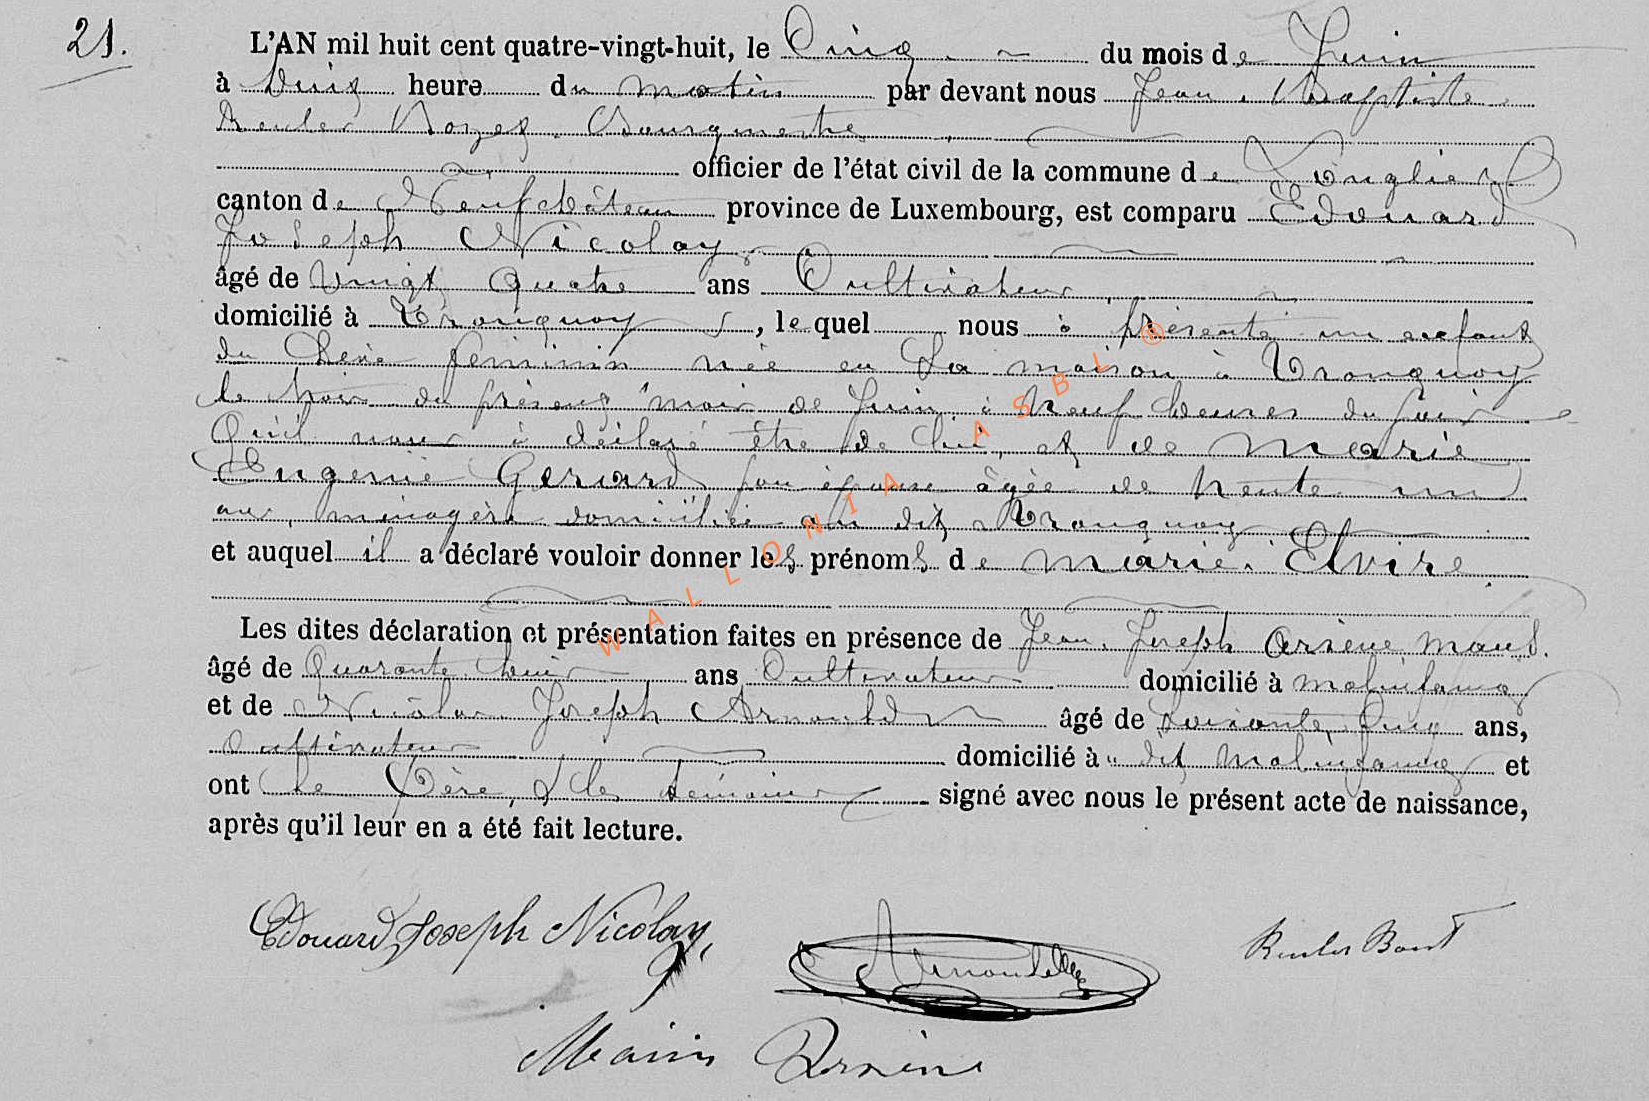 21.
L'AN mil huit cent quatre-vingt-huit, le Cinq du mois de Juin
à heure du matin par devant nous Jean Baptiste
Bourgmestre
officier de l'état civil de la commune de Longlier
canton de Neufchâteau province de Luxembourg, est comparu Edouard
Joseph Nicolay
âgé de Vingt Quatre ans Cultivateur
domicilié à Tronquoy, lequel nous à présenté un enfant
du Sexe feminin née en Sa maison à Tronquoy
le trois du présent mois de Juin à Neuf heures du Soir
Qu'il nous à déclaré être de lui, et de Marie
Eugenie Gerard son épouse âgée de trente un
ans, ménagère domiciliée au dit Tronquoy
et auquel il a déclaré vouloir donner les prénoms de Marie Elvire
Les dites déclaration et présentation faites en présence de Jean Joseph Arsène
âgé de Quarante ans Cultivateur domicilié à Molinfaing
et de Nicolas Joseph Arnould âgé de Soixante Cinq ans,
Cultivateur domicilié à u dit Molinfaing et
ont Le Père, & les témoins signé avec nous le présent acte de naissance,
après qu'il leur en a été fait lecture.
Edouard Joseph Nicolay
Arnould
Arsène
WALLONIA ASBL ®